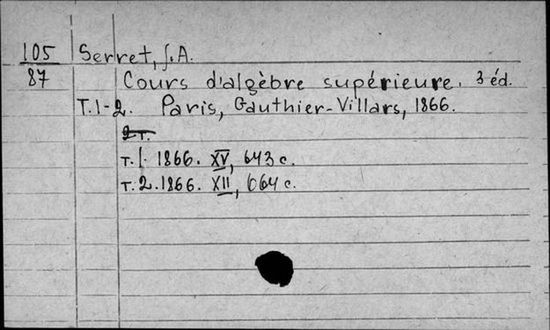 105 Serret, J.A.
87 Cours d'algèbre supérieure. 3 éd.
T.1-2. Paris, Gauthier-Villars, 1866.
2 т.
т.1. 1866. XV, 643 с.
т.2. 1866. XII, 664 с.